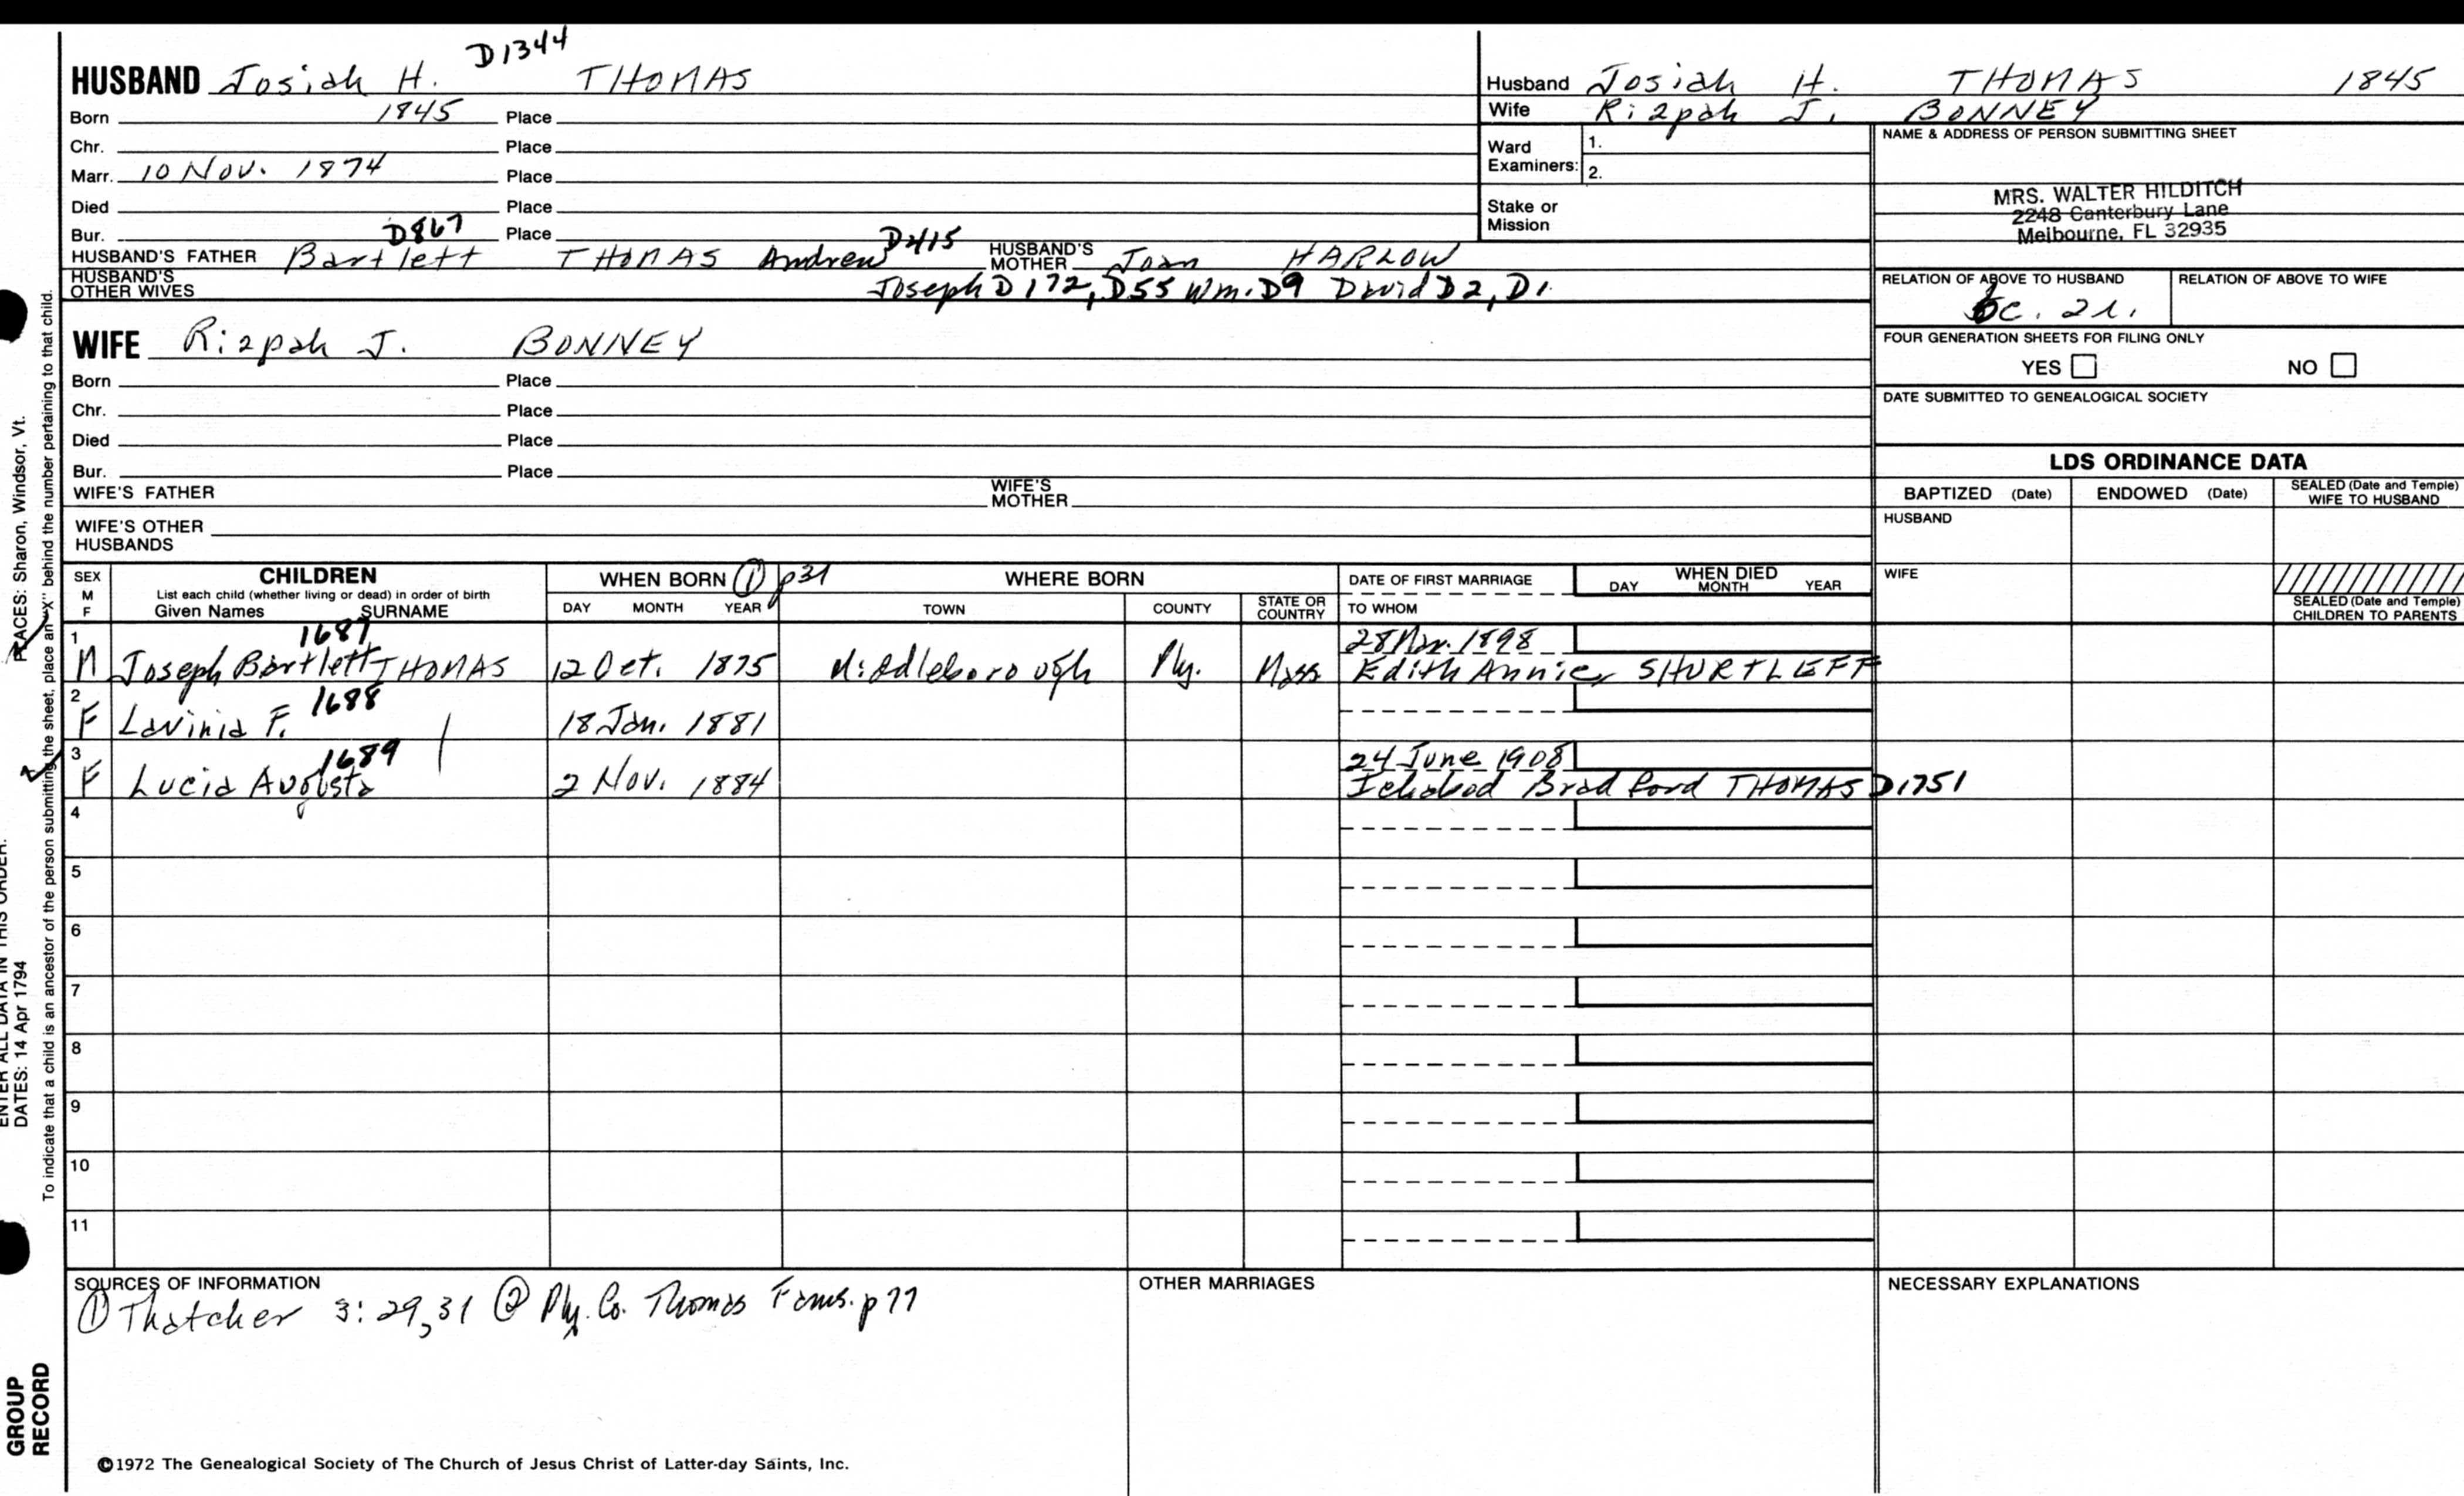 D1344
HUSBAND Josiah H. THOMAS
Born 1845 Place
Chr. Place
Marr. 10 Nov. 1874 Place
Died Place
Bur. Place
D867 D415
HUSBAND'S FATHER Bartlett THOMAS Andrew HUSBAND'S MOTHER Joan HARLOW
HUSBAND'S OTHER WIVES Joseph D172, D55 Wm. D9 David D2, D1
WIFE Rizpah J. BONNEY
Born Place
Chr. Place
Died Place
Bur. Place
WIFE'S FATHER WIFE'S MOTHER
WIFE'S OTHER HUSBANDS
Husband Josiah H. THOMAS 1845
Wife Rizpah J. BONNEY
Ward Examiners: 1.
2.
Stake or Mission
NAME & ADDRESS OF PERSON SUBMITTING SHEET
MRS. WALTER HILDITCH
2248 Canterbury Lane
Melbourne, FL 32935
RELATION OF ABOVE TO HUSBAND RELATION OF ABOVE TO WIFE
FOUR GENERATION SHEETS FOR FILING ONLY
YES NO
DATE SUBMITTED TO GENEALOGICAL SOCIETY
LDS ORDINANCE DATA
BAPTIZED (Date) ENDOWED (Date) SEALED (Date and Temple) WIFE TO HUSBAND
HUSBAND
WIFE
SEALED (Date and Temple) CHILDREN TO PARENTS
SEX M F CHILDREN
List each child (whether living or dead) in order of birth
Given Names SURNAME
WHEN BORN ① p31
DAY MONTH YEAR
WHERE BORN
TOWN COUNTY STATE OR COUNTRY
DATE OF FIRST MARRIAGE
TO WHOM
WHEN DIED
DAY MONTH YEAR
1687 28 Nov. 1898
1 M Joseph Bartlett THOMAS 12 Oct. 1875 Middleborough Ply. Mass Edith Annie SHURTLEFF
1688
2 F Lavinia F. 18 Jan. 1881
1689 24 June 1908
3 F Lucia Augusta 2 Nov. 1884 Ichabod Bradford THOMAS D1751
4
5
6
7
8
9
10
11
SOURCES OF INFORMATION
① Thatcher 3: 29,31 ② Ply. Co. Thomas Fams. p 77
OTHER MARRIAGES
NECESSARY EXPLANATIONS
©1972 The Genealogical Society of The Church of Jesus Christ of Latter-day Saints, Inc.
ENTER ALL DATA IN THIS ORDER:
DATES: 14 Apr 1794
PLACES: Sharon, Windsor, Vt.
To indicate that a child is an ancestor of the person submitting the sheet, place an "X" behind the number pertaining to that child.
GROUP
RECORD